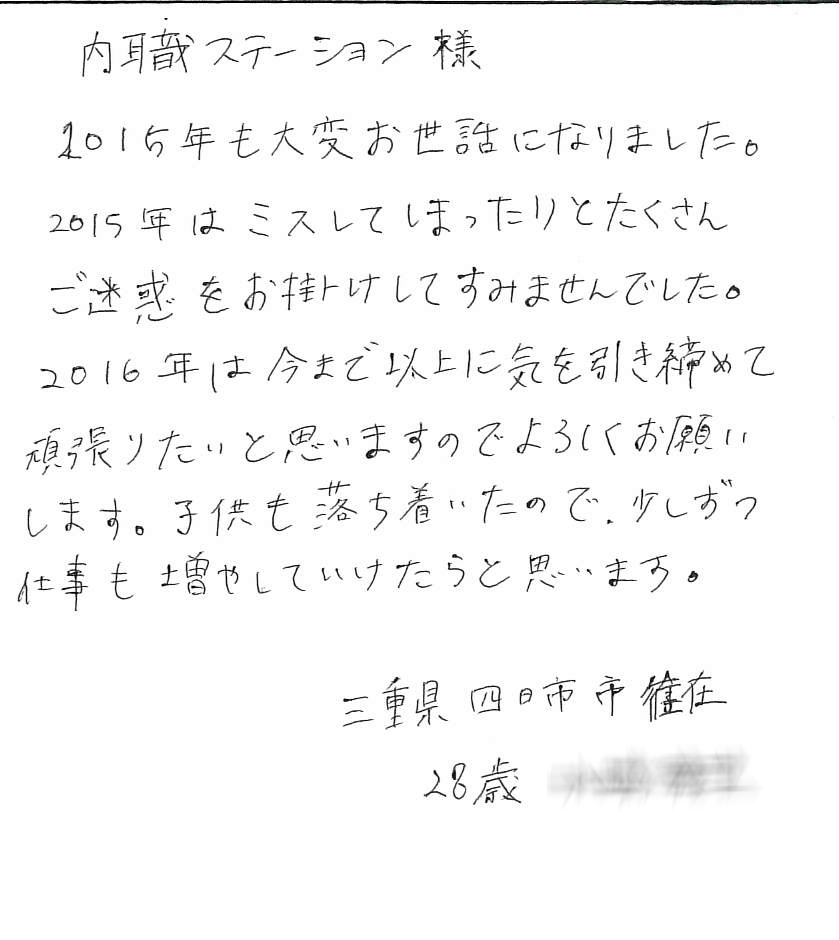 内職ステーション 様
2015年も大変お世話になりました。
2015年はミスしてしまったりとたくさん
ご迷惑をお掛けしてすみませんでした。
2016年は今まで以上に気を引き締めて
頑張りたいと思いますのでよろしくお願い
します。子供も落ち着いたので、少しずつ
仕事も増やしていけたらと思います。
三重県 四日市市 在
28歳